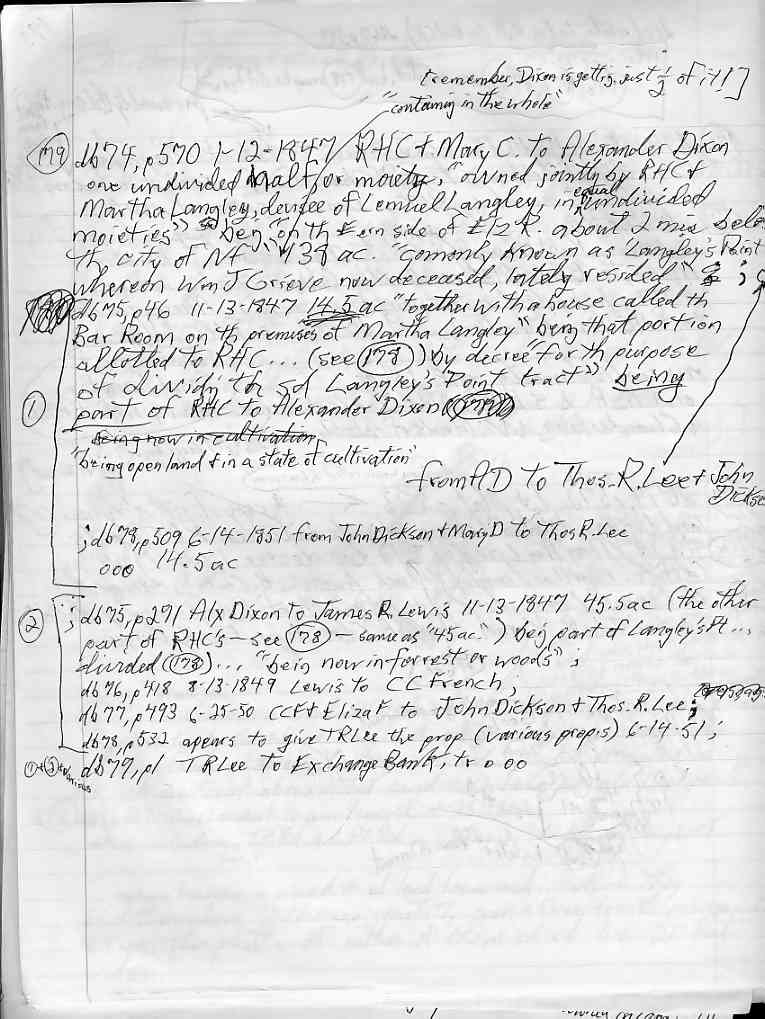 [remember, Dixon is gettig just 1/2 of it!]
"containing in the whole"
179 db74, p570 1-12-1847 RHC & Mary C. to Alexander Dixon
one undivided half, or moiety, "owned jointly by RHC &
Martha Langley, devisee of Lemuel Langley, in equal undivided
moieties" beg "on th Eern side of Eliz R. about 2 miles below
th city of Nf" "138 ac. "comonly known as 'Langley's Point'
whereon Wm J Grieve now deceased, lately resided" ;
db75, p46 11-13-1847 14.5 ac "together with a house called th
Bar Room on th premises of Martha Langley" being that portion
allotted to RHC... (see 178) by decree "for th purpose
of dividig th sd Langley's Point tract" being
part of RHC to Alexander Dixon
1
being now in cultivation
"being open land & in a state of cultivation"
from AD to Thos. R. Lee & John
Dickson
; db78, p509 6-14-1851 from John Dickson & Mary D to Thos R. Lee
ooo 14.5 ac
2 ; db75, p291 Alx Dixon to James R. Lewis 11-13-1847 45.5 ac (the other
part of RHC's - see 178 - same as "45 ac.") beig part of Langley's Pt...
divided (178)... "bein now in forrest or woods" ;
db76, p418 8-13-1849 Lewis to CC French;
db77, p493 6-25-50 CCF & Eliza F to John Dickson & Thos. R. Lee;
db78, p532 apears to give TRLee the prop (various prop's) 6-14-51;
1 & 2 & various db79, p1 TRLee to Exchange Bank, tr ooo